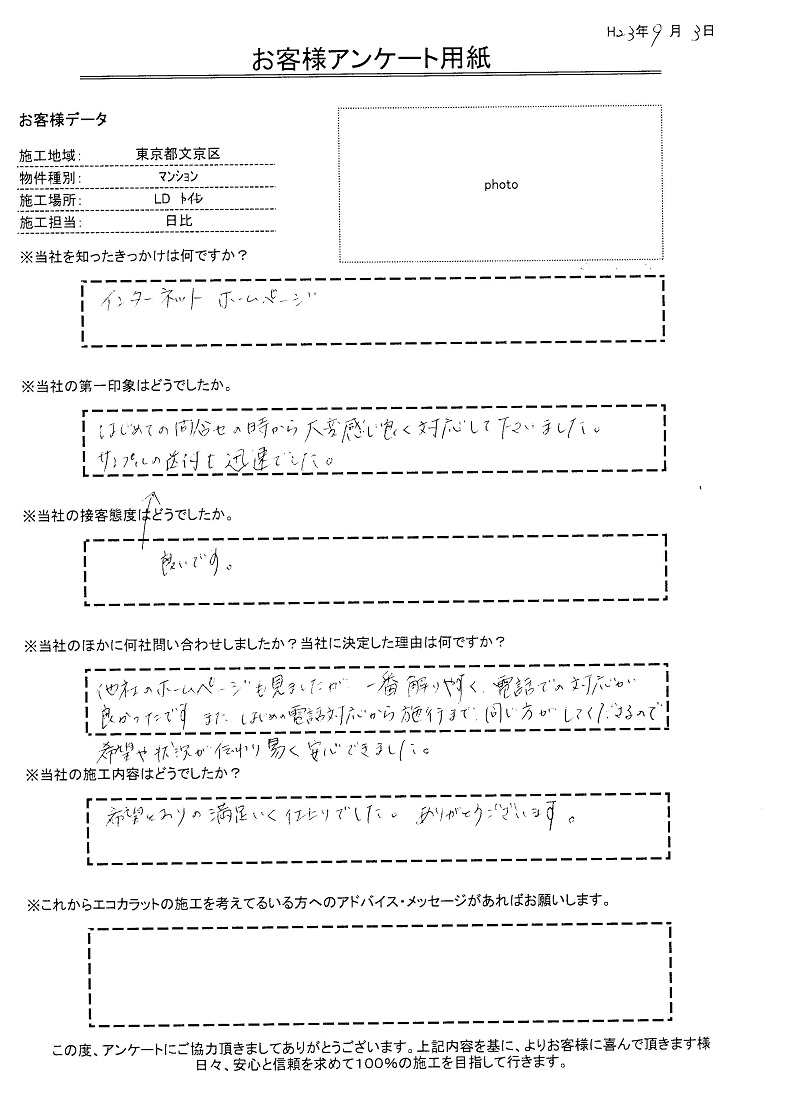 H23年9月3日
お客様アンケート用紙
お客様データ
施工地域: 東京都文京区
物件種別: マンション
施工場所: LD トイレ
施工担当: 日比
photo
※当社を知ったきっかけは何ですか？
インターネット ホームページ
※当社の第一印象はどうでしたか。
はじめての問合せの時から大変感じ良く対応して下さいました。
サンプルの送付も迅速でした。
※当社の接客態度はどうでしたか。
良いです。
※当社のほかに何社問い合わせしましたか？当社に決定した理由は何ですか？
他社のホームページも見ましたが、一番解りやすく、電話での対応が
良かったです また はじめの電話対応から施行まで、同じ方がしてくださるので
希望や状況が伝わり易く安心できました。
※当社の施工内容はどうでしたか？
希望どおりの満足いく仕上りでした。 ありがとうございます。
※これからエコカラットの施工を考えてるいる方へのアドバイス・メッセージがあればお願いします。
この度、アンケートにご協力頂きましてありがとうございます。上記内容を基に、よりお客様に喜んで頂きます様
日々、安心と信頼を求めて100%の施工を目指して行きます。